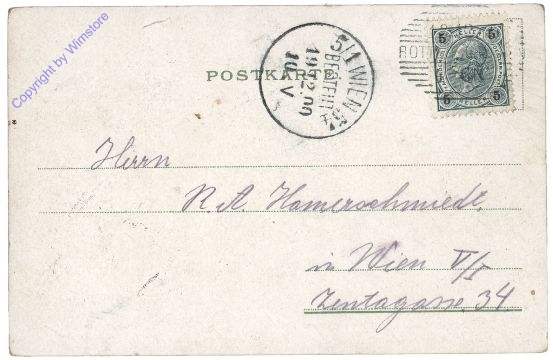 Copyright by Wimstore
POSTKARTE
5/1 WIEN 5/1
BESTELLT
19.12.00
10.V
ROT
5 HELLER 5
5 HELLER 5
Herrn
R. A. Hamerschmiedt
in Wien V/I
Zentagasse 34